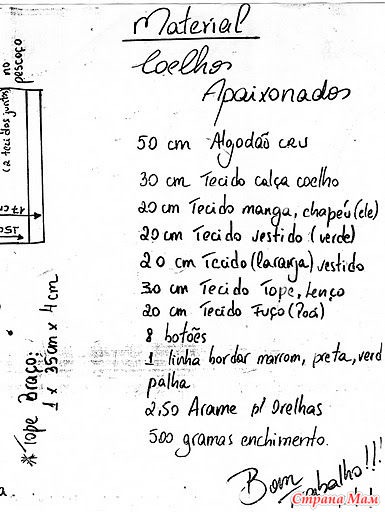 Material
Coelhos
Apaixonados
50 cm Algodão cru
30 cm Tecido calça coelho
20 cm Tecido manga, chapéu (ele)
20 cm Tecido vestido (verde)
20 cm Tecido (laranja) vestido
30 cm Tecido Tope, Lenço
20 cm Tecido Fuço (Poá)
8 botões
1 linha bordar marrom, preta, verd
palha
2,50 Arame p/ Orelhas
500 gramas enchimento.
Bom trabalho!!!
no
pescoço
(2 tecidos juntos)
17 cm
* Tope Braço:
1 x 35cm x 4cm
a.
Страна Мам